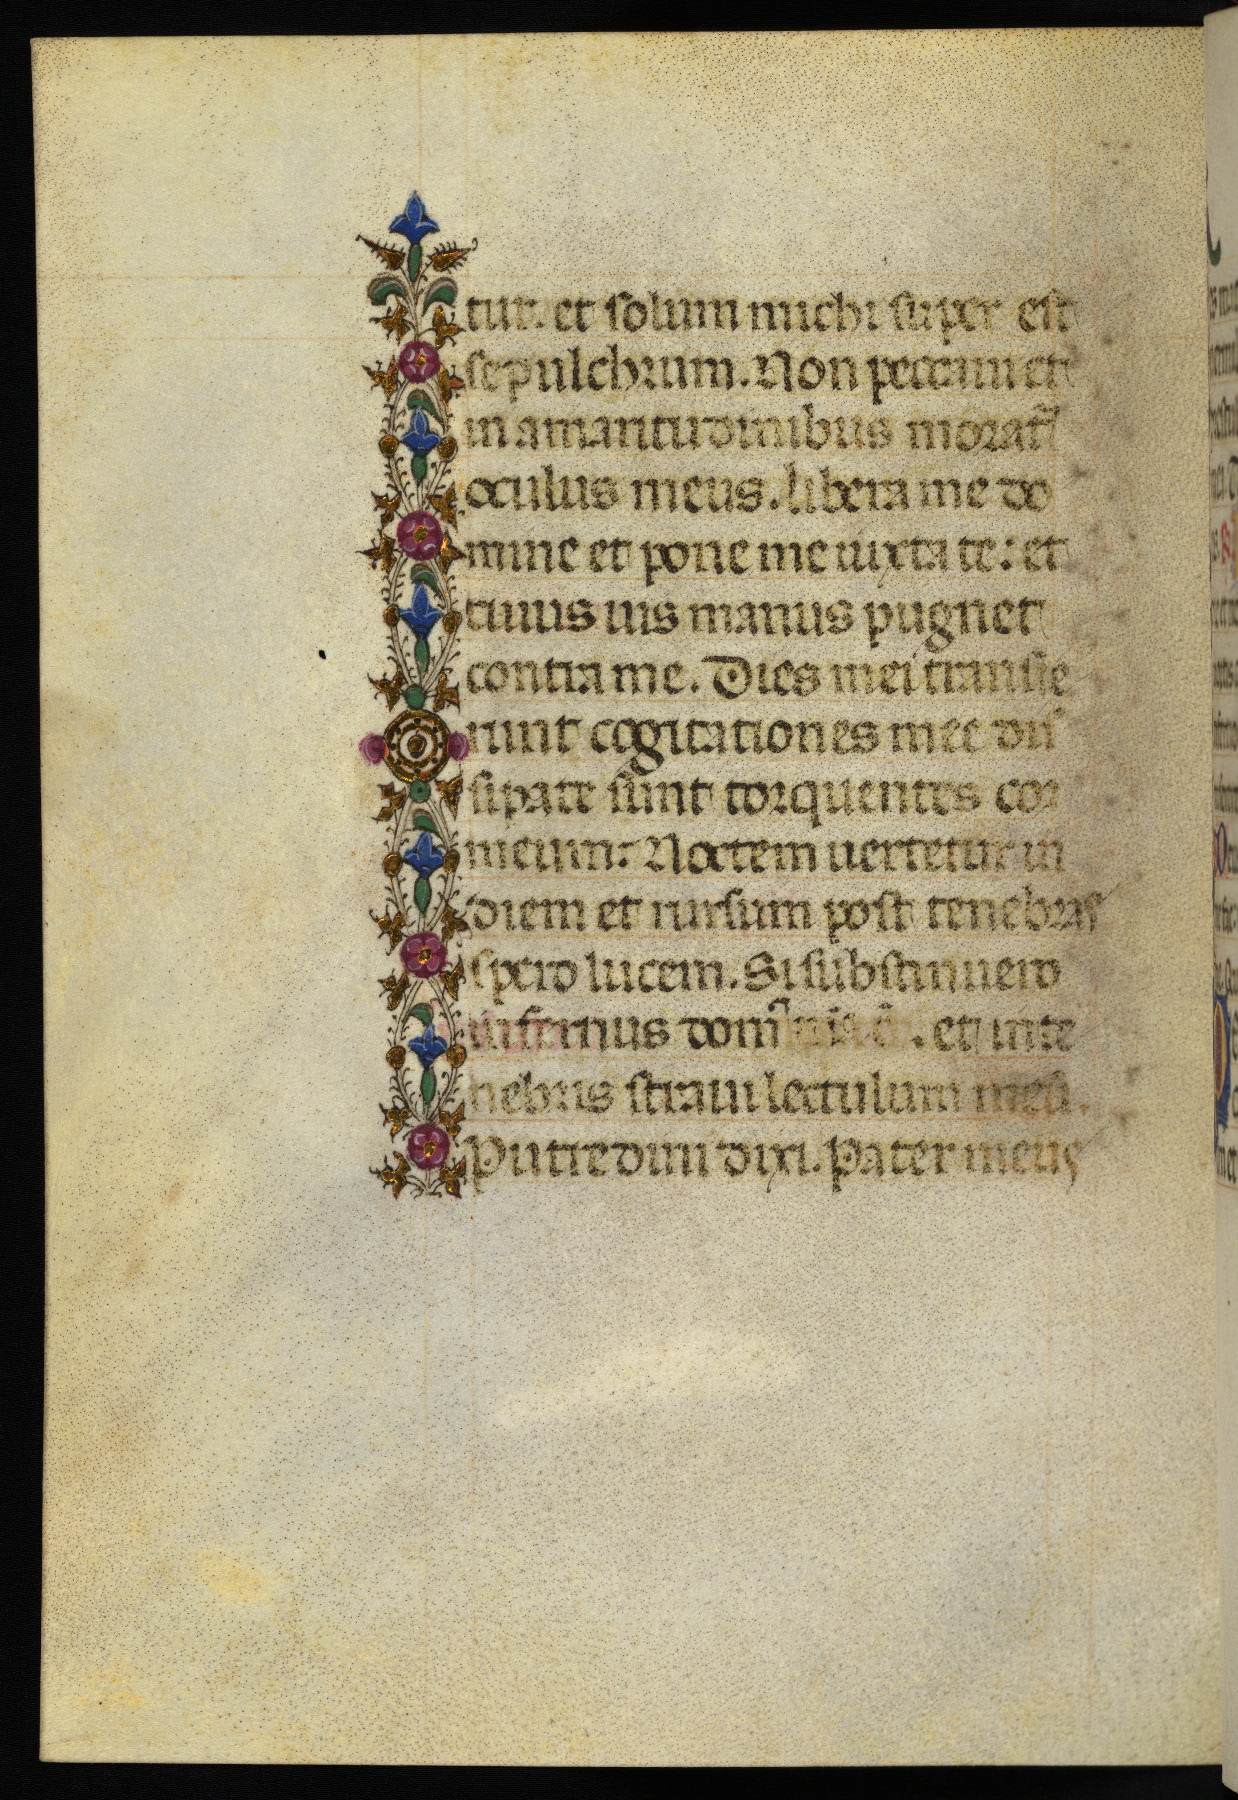 tur. et solum michi super est
sepulchrum. Non peccaui et
in amaritudinibus morat̃
oculus meus. libera me do
mine et pone me iuxta te: et
cuius uis manus pugnet
contra me. Dies mei transie
runt cogitationes mee dis
sipate sunt torquentes cor
meum: Noctem uertetur in
diem et rursum post tenebras
spero lucem. Si substinuero
infernus dom᷒ . et in te
nebris straui lectulum meũ.
Putredini dixi. Pater meus